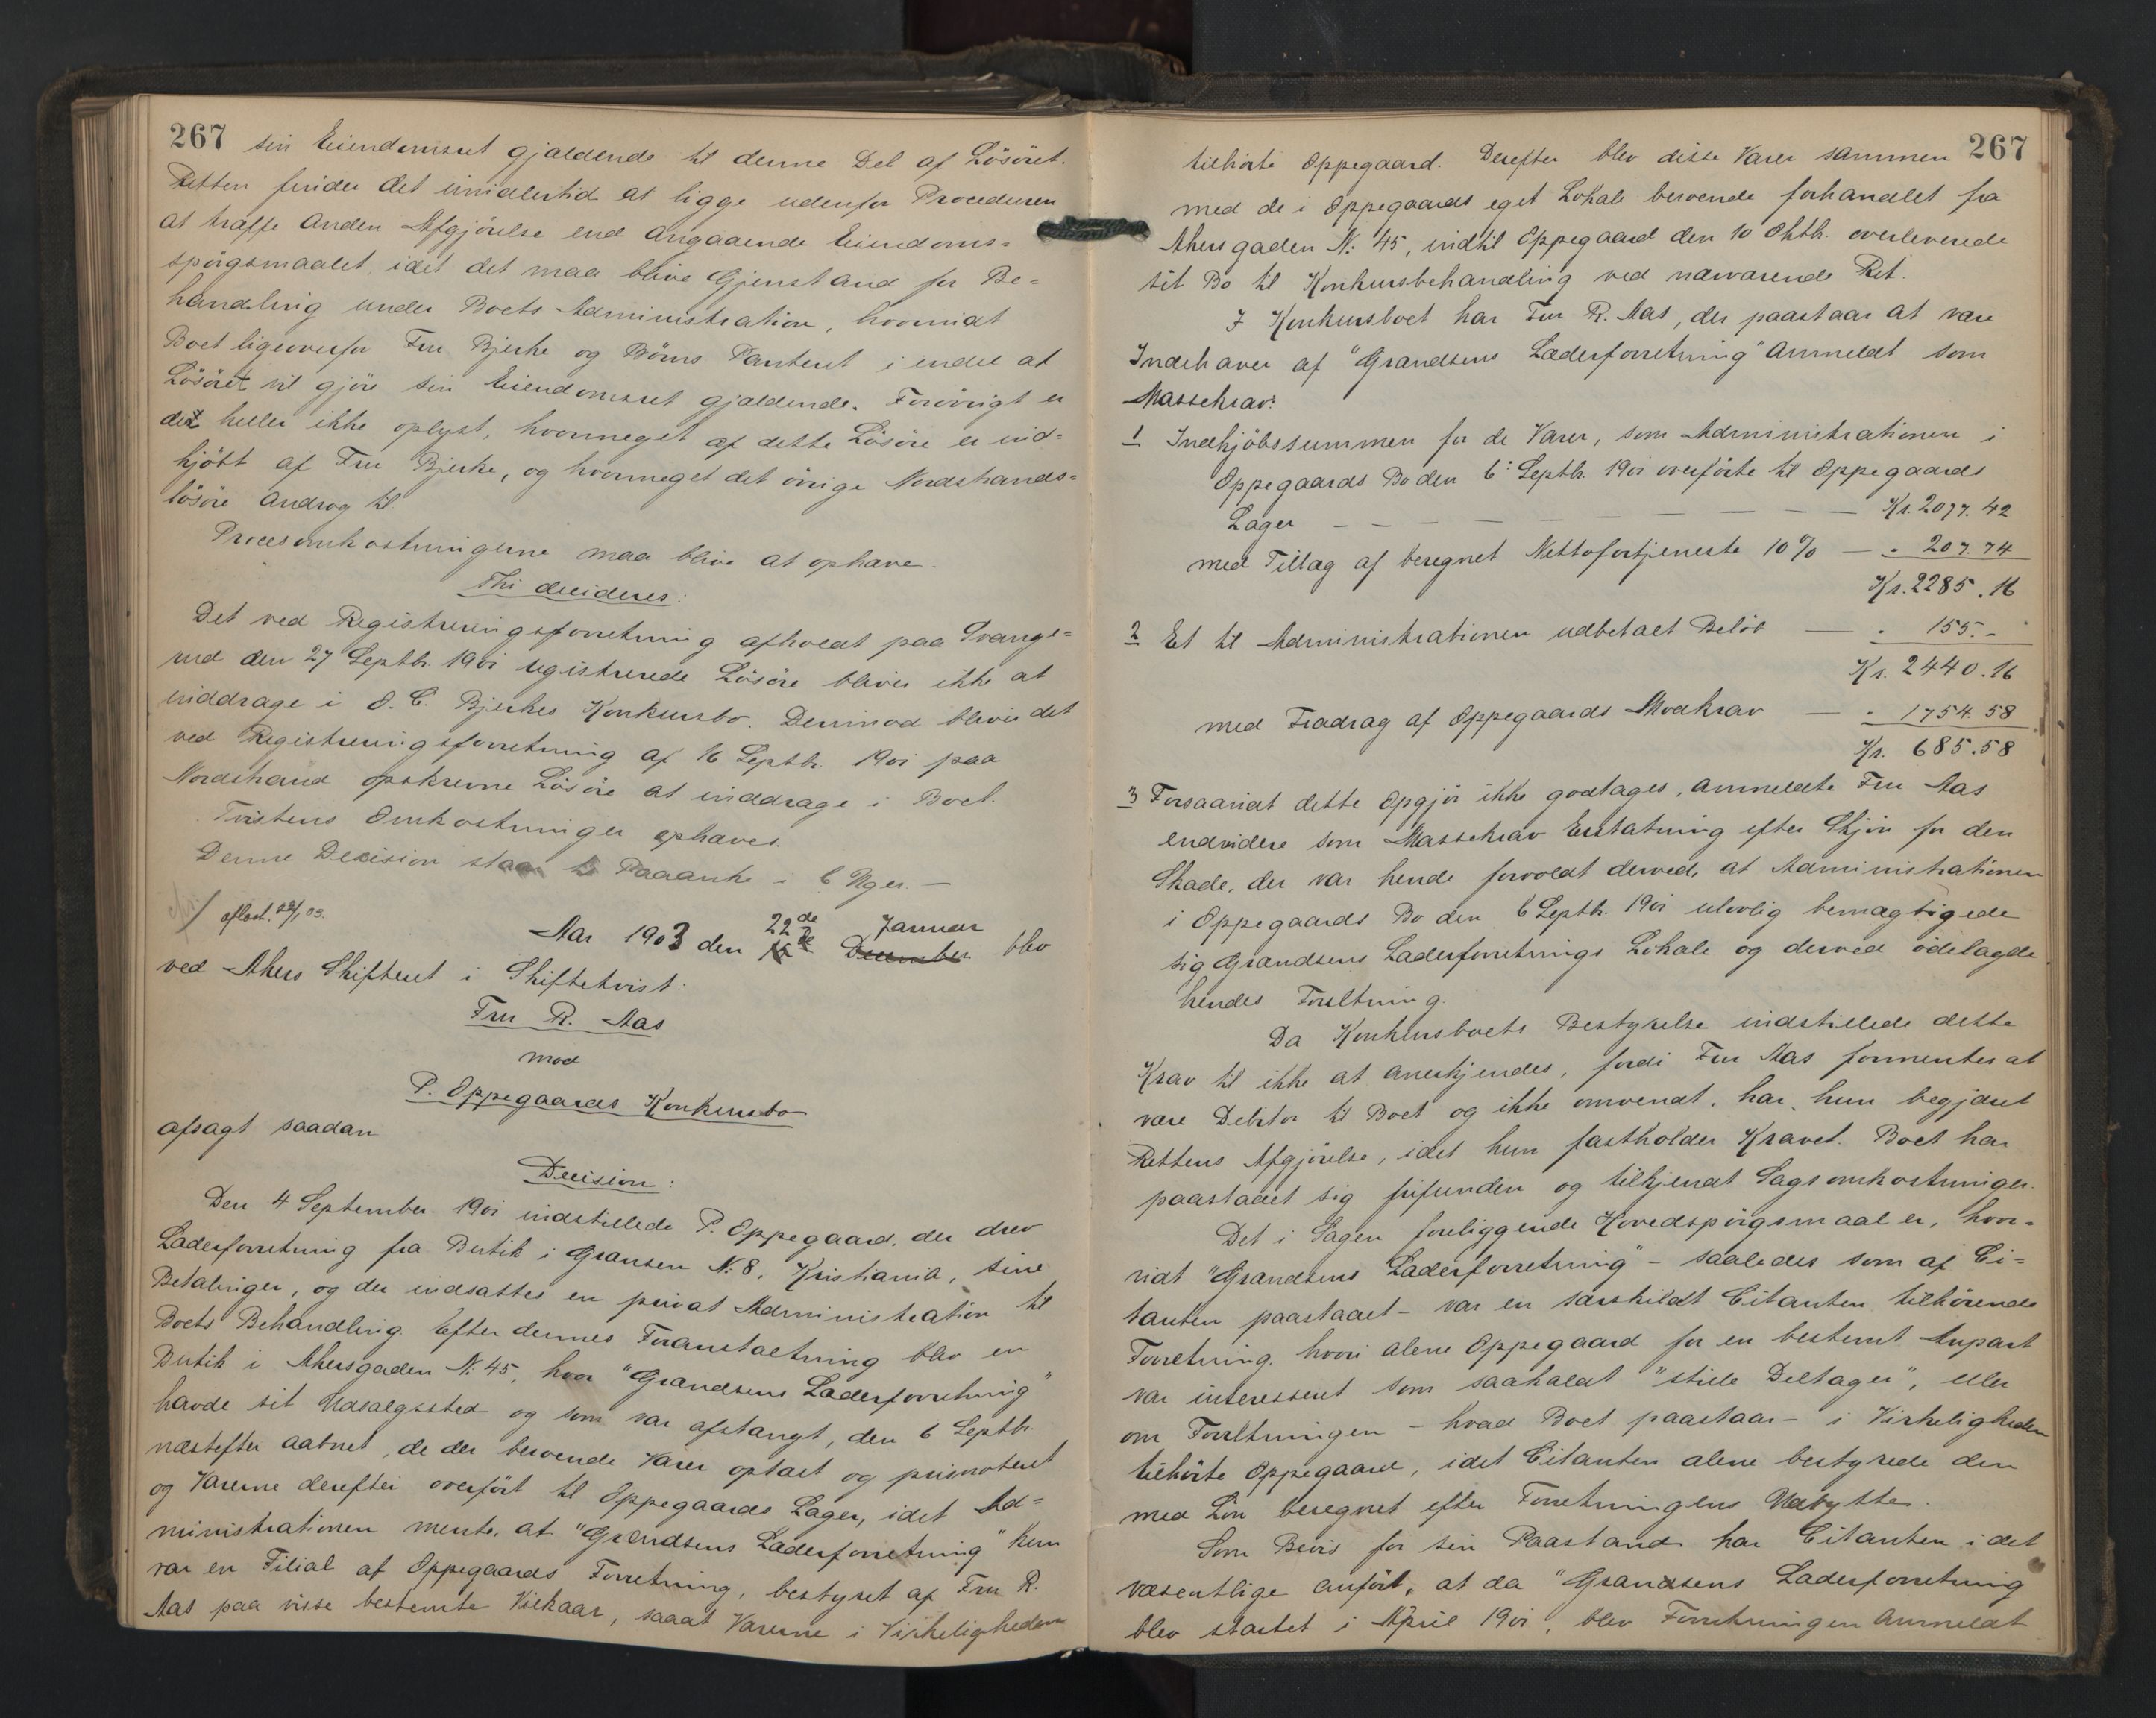 267 sin Eiendomsret gjældende til denne Del af Løsøret.
Retten finder det imidlertid at ligge udenfor Proceduren
at træffe anden Afgjørelse end angaaende Eiendoms=
spørgsmaalet, idet det maa blive Gjenstand for Be=
handling under Boets Administration, hvorvidt
Boet ligeoverfor Fru Bjerke og Børns Panteret i endel af
Løsøret vil gjøre sin Eiendomsret gjældende. Forøvrigt er
det heller ikke oplyst, hvormeget af dette Løsøre er ind=
kjøbt af Fru Bjerke, og hvormeget det øvrige Nordstrands=
løsøre androg til
Procesomkostningerne maa blive at ophæve.
Thi decideres:
Det ved Registreringsforretning afholdt paa Svange=
rud den 27 Septbr. 1901 registrerede Løsøre bliver ikke at
inddrage i O. C. Bjerkes Konkursbo. Derimod bliver det
ved Registreringsforretning af 16 Septbr. 1901 paa
Nordstrand opskrevne Løsøre at inddrage i Boet.
Tvistens Omkostninger ophæves.
Denne Decision staar til Paaanke i 6 Uger. —
/ aflæst. 22/1 03.
22de Januar
Aar 1903 den December blev
ved Akers Skifteret i Skiftetvist:
Fru R. Aas
mod
P. Oppegaards Konkursbo
afsagt saadan
Decision:
Den 4 September 1901 indstillede P. Oppegaard, der drev
Læderforretning fra Butik i Grænsen N: 8, Kristiania, sine
Betalinger, og der indsattes en privat Administration til
Boets Behandling. Efter dennes Foranstaltning blev en
Butik i Akersgaden N: 45, hvor "Grændsens Læderforretning"
havde sit Udsalgssted og som var afstængt, den 6 Septbr.
næstefter aabnet, de der beroende Varer optalt og prisnoteret
og Varerne derefter overført til Oppegaards Lager, idet Ad=
ministrationen mente, at "Grændsens Læderforretning" kun
var en Filial af Oppegaards Forretning, bestyret af Fru R.
Aas paa visse bestemte Vilkaar, saaat Varerne i Virkeligheden
267
tilhørte Oppegaard. Derefter blev disse Varer sammen
med de i Oppegaards eget Lokale beroende forhandlet fra
Akersgaden N: 45, indtil Oppegaard den 10 Oktbr. overleverede
sit Bo til Konkursbehandling ved nærværende Ret.
I Konkursboet har Fru R. Aas, der paastaar at være
Indehaver af "Grændsens Læderforretning" anmeldt som
Massekrav:
1 Indkjøbssummen for de Varer, som Administrationen i
Oppegaards Bo den 6: Septbr. 1901 overførte til Oppegaards
Lager — — — — — — — — — Kr. 2077. 42
med Tillæg af beregnet Nettofortjeneste 10% — " 207. 74
Kr. 2285. 16
2 Et til Administrationen udbetalt Beløb — " 155. -
Kr. 2440. 16
med Fradrag af Oppegaards Modkrav — " 1754. 58
Kr. 685. 58
3 Forsaavidt dette Opgjør ikke godtages, anmeldte Fru Aas
endvidere som Massekrav Erstatning efter Skjøn for den
Skade, der var hende forvoldt derved, at Administrationen
i Oppegaards Bo den 6 Septbr. 1901 ulovlig bemægtigede
sig Grændsens Læderforretnings Lokale og derved ødelagde
hendes Forretning.
Da Konkursboets Bestyrelse indstillede dette
Krav til ikke at anerkjendes, fordi Fru Aas formentes at
være Debitor til Boet og ikke omvendt, har hun begjæret
Rettens Afgjørelse, idet hun fastholder Kravet. Boet har
paastaaet sig frifunden og tilkjendt Sagsomkostninger.
Det i Sagen foreliggende Hovedspørgsmaal er, hvor-
vidt "Grændsens Læderforretning" - saaledes som af Ci=
tanten paastaaet - var en særskildt Citanten tilhørende
Forretning, hvori alene Oppegaard for en bestemt Anpart
var interesseret som saakaldt "stille Deltager", eller
om Forretningen - hvad Boet paastaar - i Virkeligheden
tilhørte Oppegaard, idet Citanten alene bestyrede den
med Løn beregnet efter Forretningens Udbytte.
Som Bevis for sin Paastand har Citanten i det
væsentlige anført, at da "Grændsens Læderforretning
blev startet i April 1901, blev Forretningen anmeldt